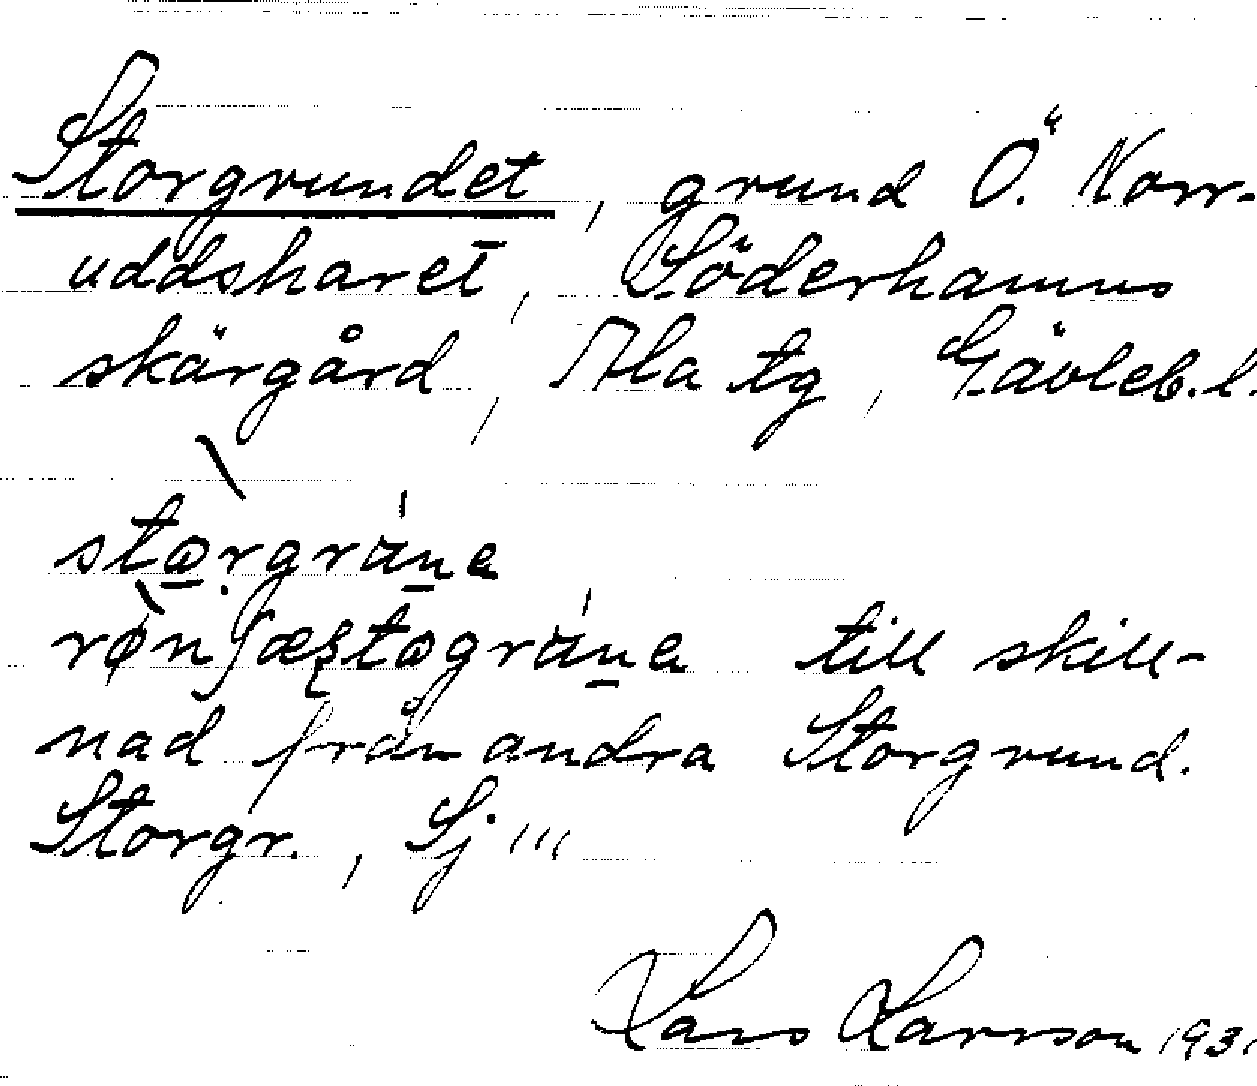 Storgrundet, grund Ö. Norr-
uddsharet, Söderhamns
skärgård, Ala tg, Gävleb. l.
till skill-
nad från andra Storgrund.
Storgr., Sj '''
Lars Larsson 1931